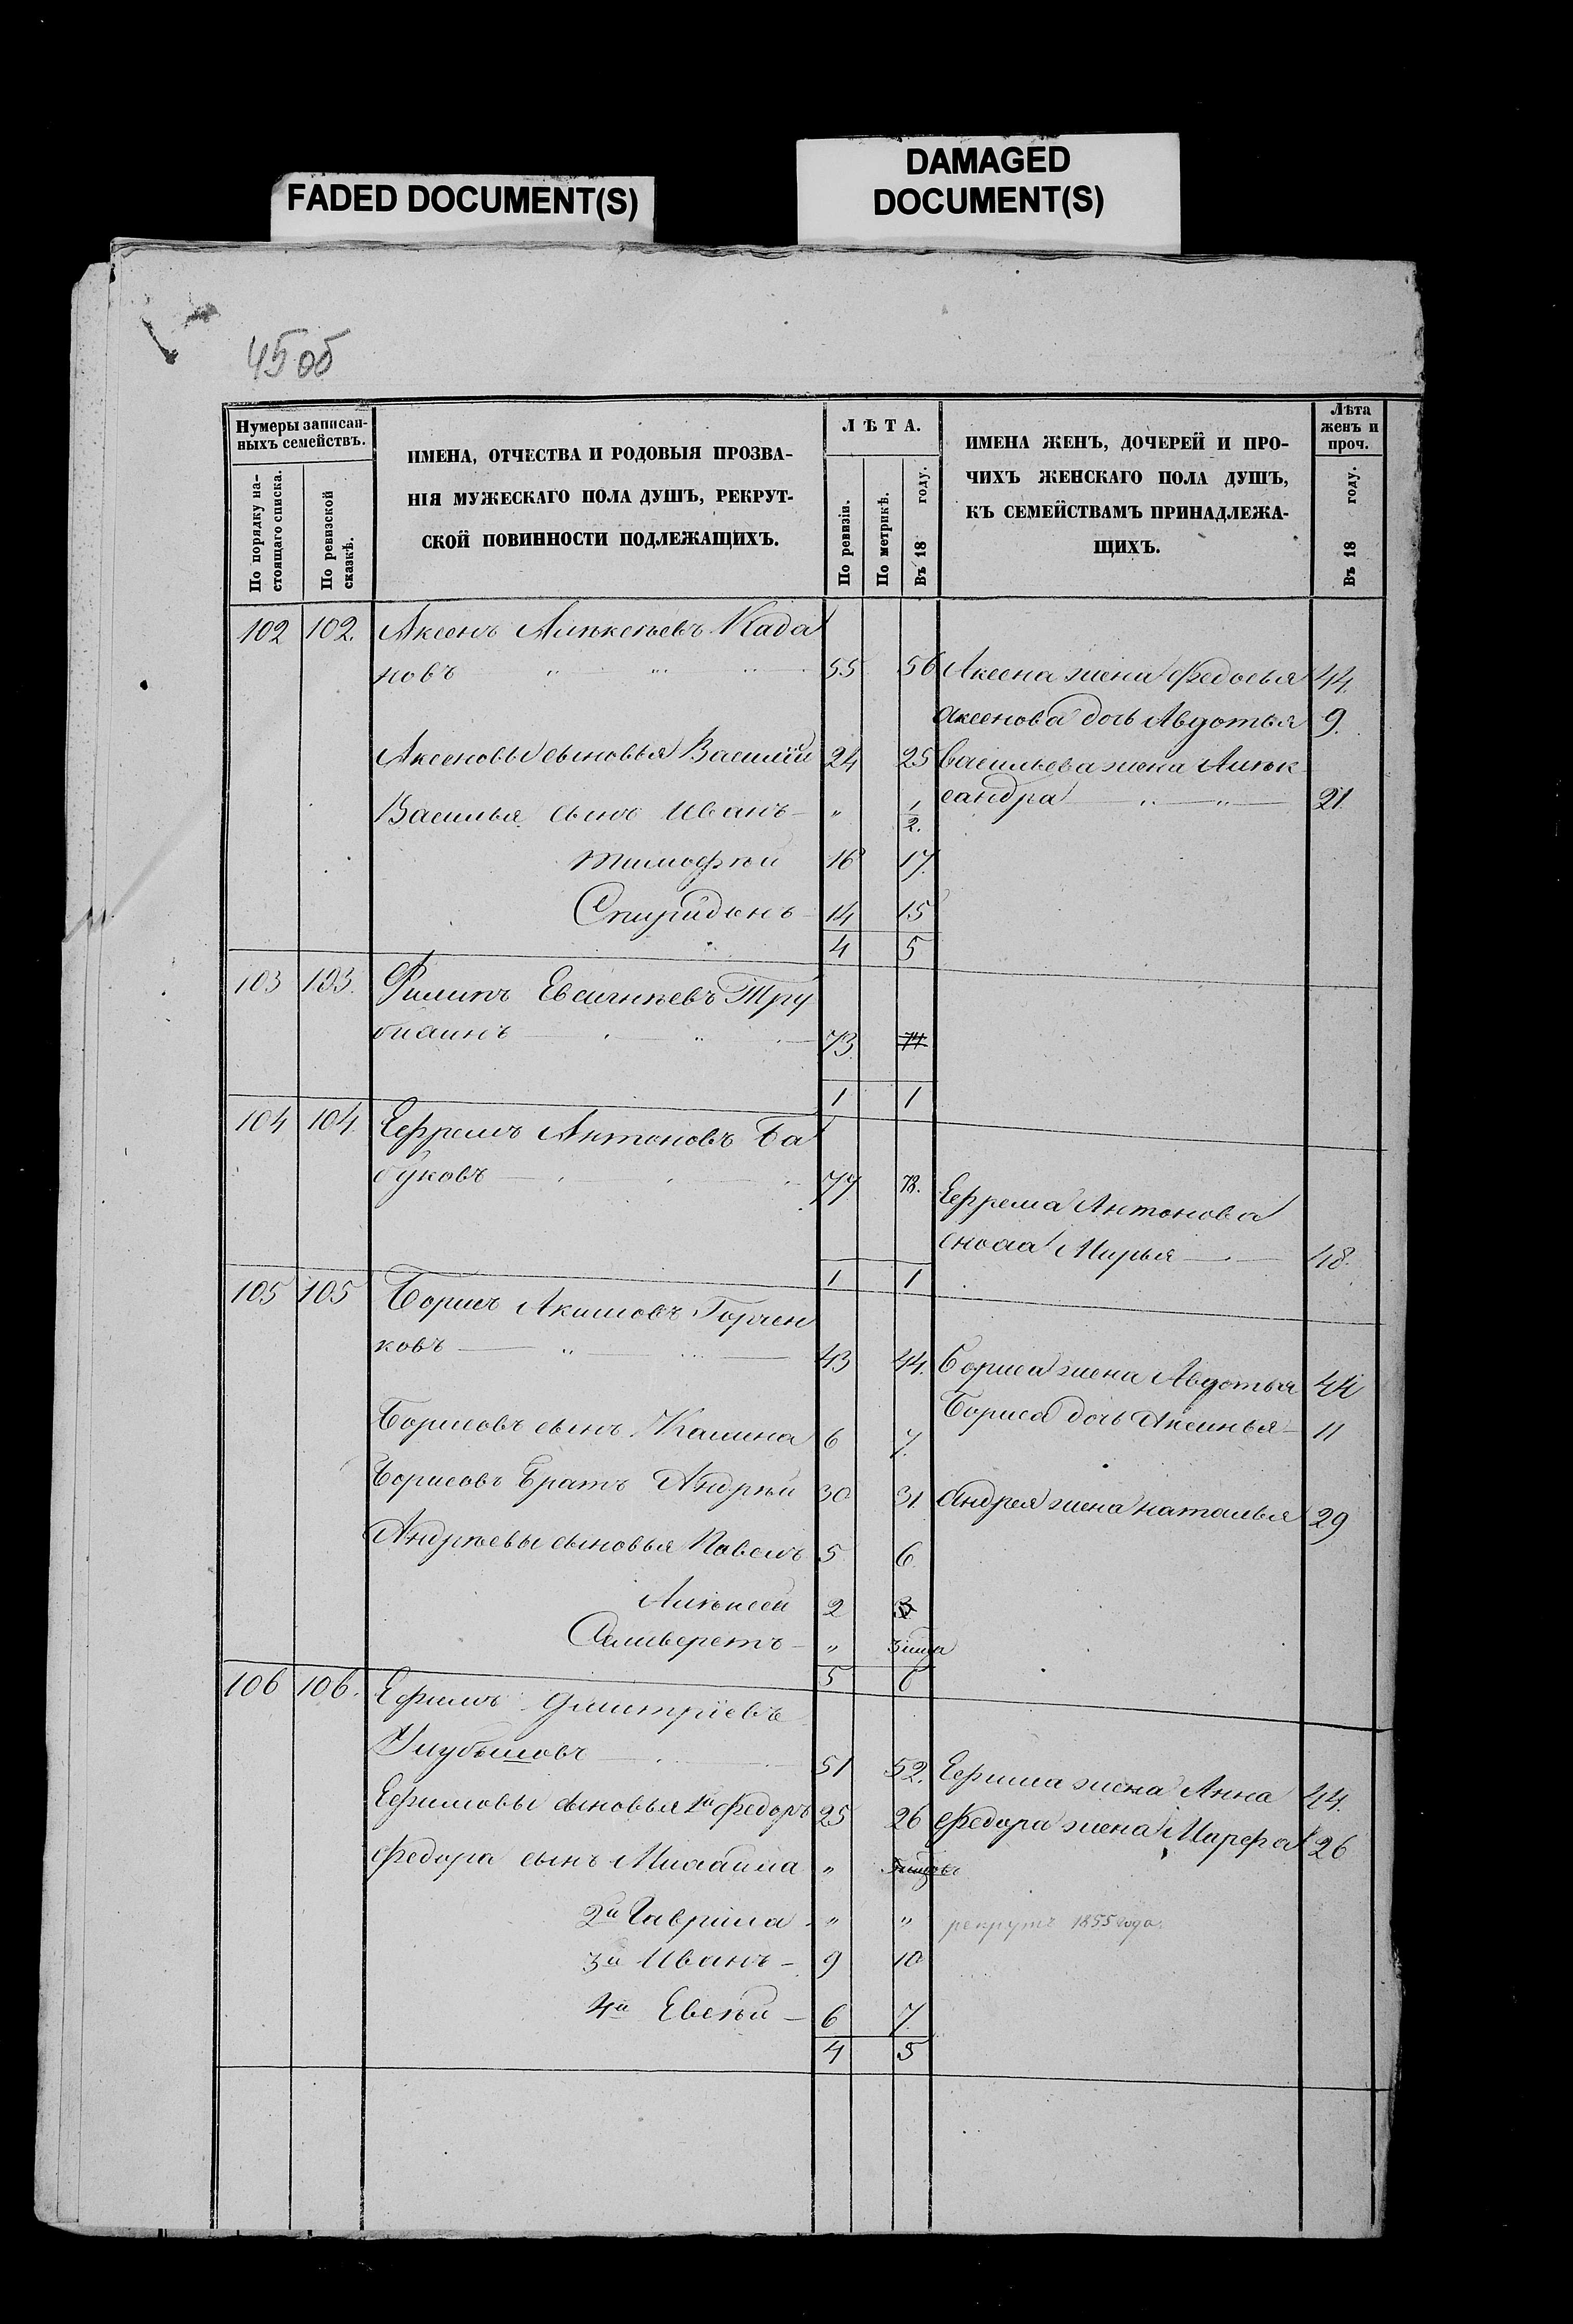 FADED DOCUMENT(S)
DAMAGED
DOCUMENT(S)
45 об
Нумеры записан-
ныхъ семействъ.
По порядку на-
стоящаго списка.
По ревизской
сказкѣ.
ИМЕНА, ОТЧЕСТВА И РОДОВЫЯ ПРОЗВА-
НІЯ МУЖЕСКАГО ПОЛА ДУШЪ, РЕКРУТ-
СКОЙ ПОВИННОСТИ ПОДЛЕЖАЩИХЪ.
ЛѢТА.
По ревизіи.
По метрикѣ.
Въ 18 году.
ИМЕНА ЖЕНЪ, ДОЧЕРЕЙ И ПРО-
ЧИХЪ ЖЕНСКАГО ПОЛА ДУШЪ,
КЪ СЕМЕЙСТВАМЪ ПРИНАДЛЕЖА-
ЩИХЪ.
Лѣта
женъ и
проч.
Въ 18 году.
102 102. Аксенъ Када
новъ 55 56 Аксена жена Федосья 44.
Аксенова дочь Авдотья 9.
Аксеновы сыновья Василій 24 25 Васильева жена Алек
сандра 21
Василья сынъ Иванъ " 1/2.
Тимофѣй 16 17
Спиридонъ 14 15
4 5
103 103. Филипъ Тру
73 74
1 1
104 104 Ефремъ Антоновъ Ба
буковъ 77 78.
Ефрема Антонова
сноха Марья 48.
1 1
105 105 Борисъ Акимовъ Горчен
ковъ 43 44. Бориса жена Авдотья 44
Бориса дочь Аксинья 11
Борисовъ сынъ Калина 6 7.
Борисовъ Братъ Андрѣй 30 31 Андрея жена наталья 29
Андрѣевы сыновья Павелъ 5 6
Алексей 2 3
Селиверстъ "
5 6
106 106. Ефимъ Дмитріевъ
51 52. Ефима жена Анна 44.
Ефимовы сыновья 1й Федоръ 25 26 Федора жена Марфа 26
Федора сынъ "
2й Гаврила " " рекрутъ 1855 года.
3й Иванъ 9 10
4й Евсѣй 6 7
4 5